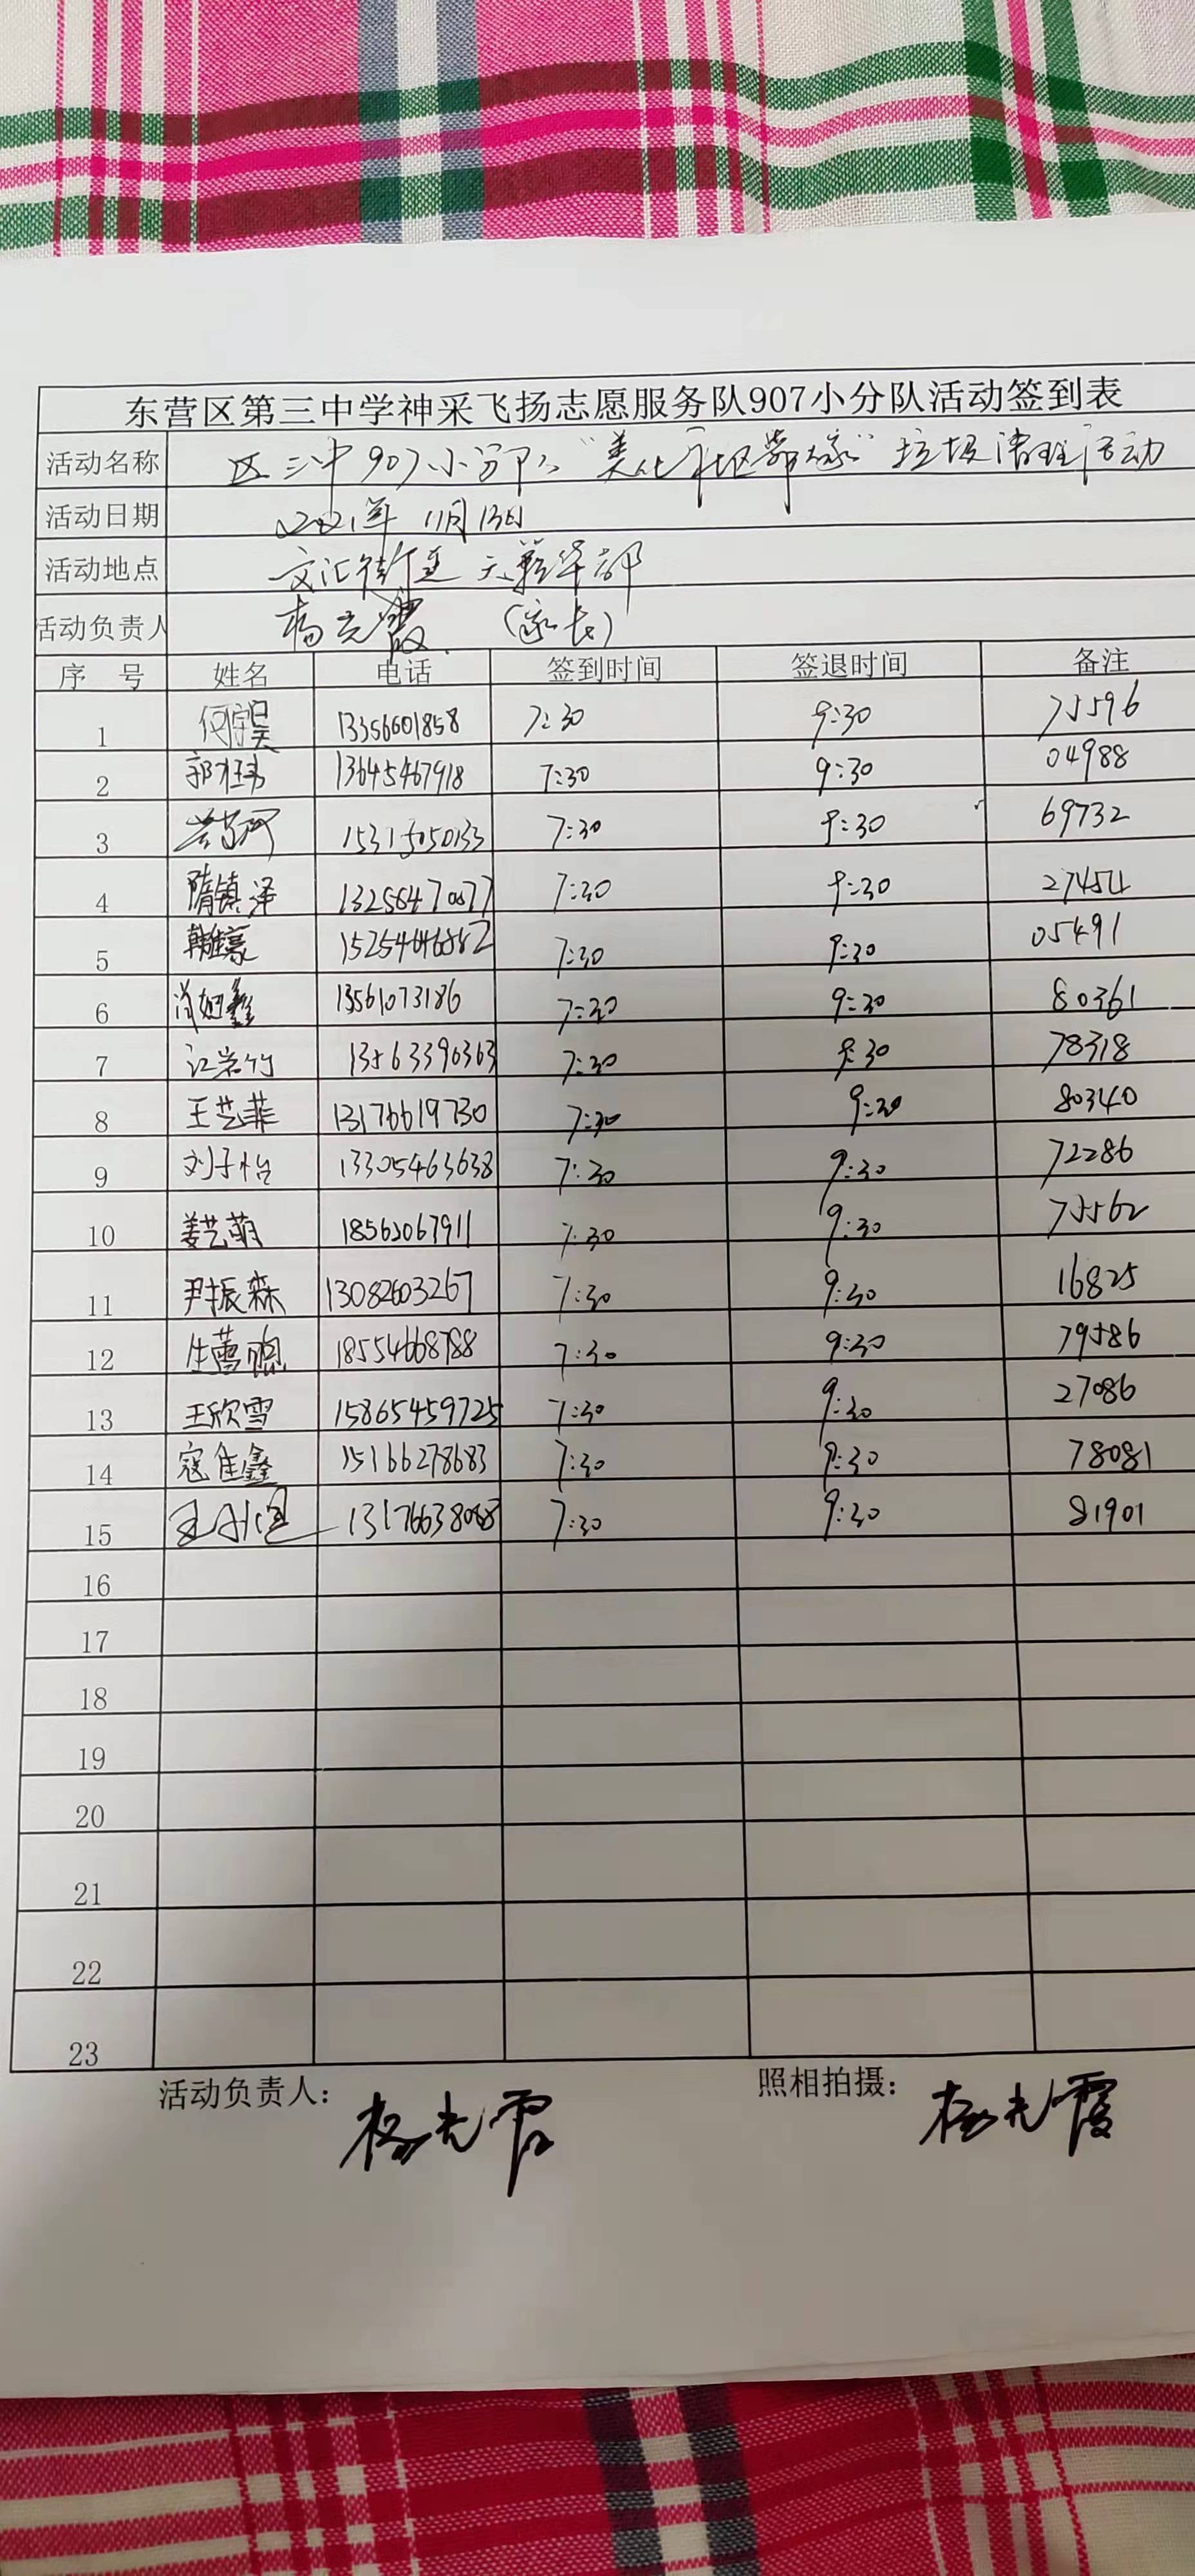 东营区第三中学神采飞扬志愿服务队907小分队活动签到表
活动名称 区三中907小分队"美化社区靠大家"垃圾清理活动
活动日期 2021年11月13日
活动地点 文汇街道 天籁华都
活动负责人 杨光霞 (家长)
序 号 姓名 电话 签到时间 签退时间 备注
1 何宇昊 13356601858 7:30 9:30 75596
2 郭 13645467918 7:30 9:30 04988
3 15315050133 7:30 9:30 69732
4 隋镇泽 13256470077 7:30 9:30 27454
5 韩 7:30 9:30 05491
6 肖 鑫 13561073186 7:30 9:30 80361
7 江岩竹 13563390363 7:30 9:30 78318
8 王艺菲 13176619730 7:30 9:30 80340
9 刘子怡 13305463638 7:30 9:30 72286
10 姜艺萌 18562067911 7:30 9:30 75562
11 尹振森 13082603267 7:30 9:30 16825
12 18554668788 7:30 9:30 79586
13 王欣雪 15865459725 7:30 9:30 27086
14 寇佳鑫 15166278683 7:30 9:30 78081
15 王 7:30 9:30 81901
16
17
18
19
20
21
22
23
活动负责人: 杨光霞 照相拍摄: 杨光霞